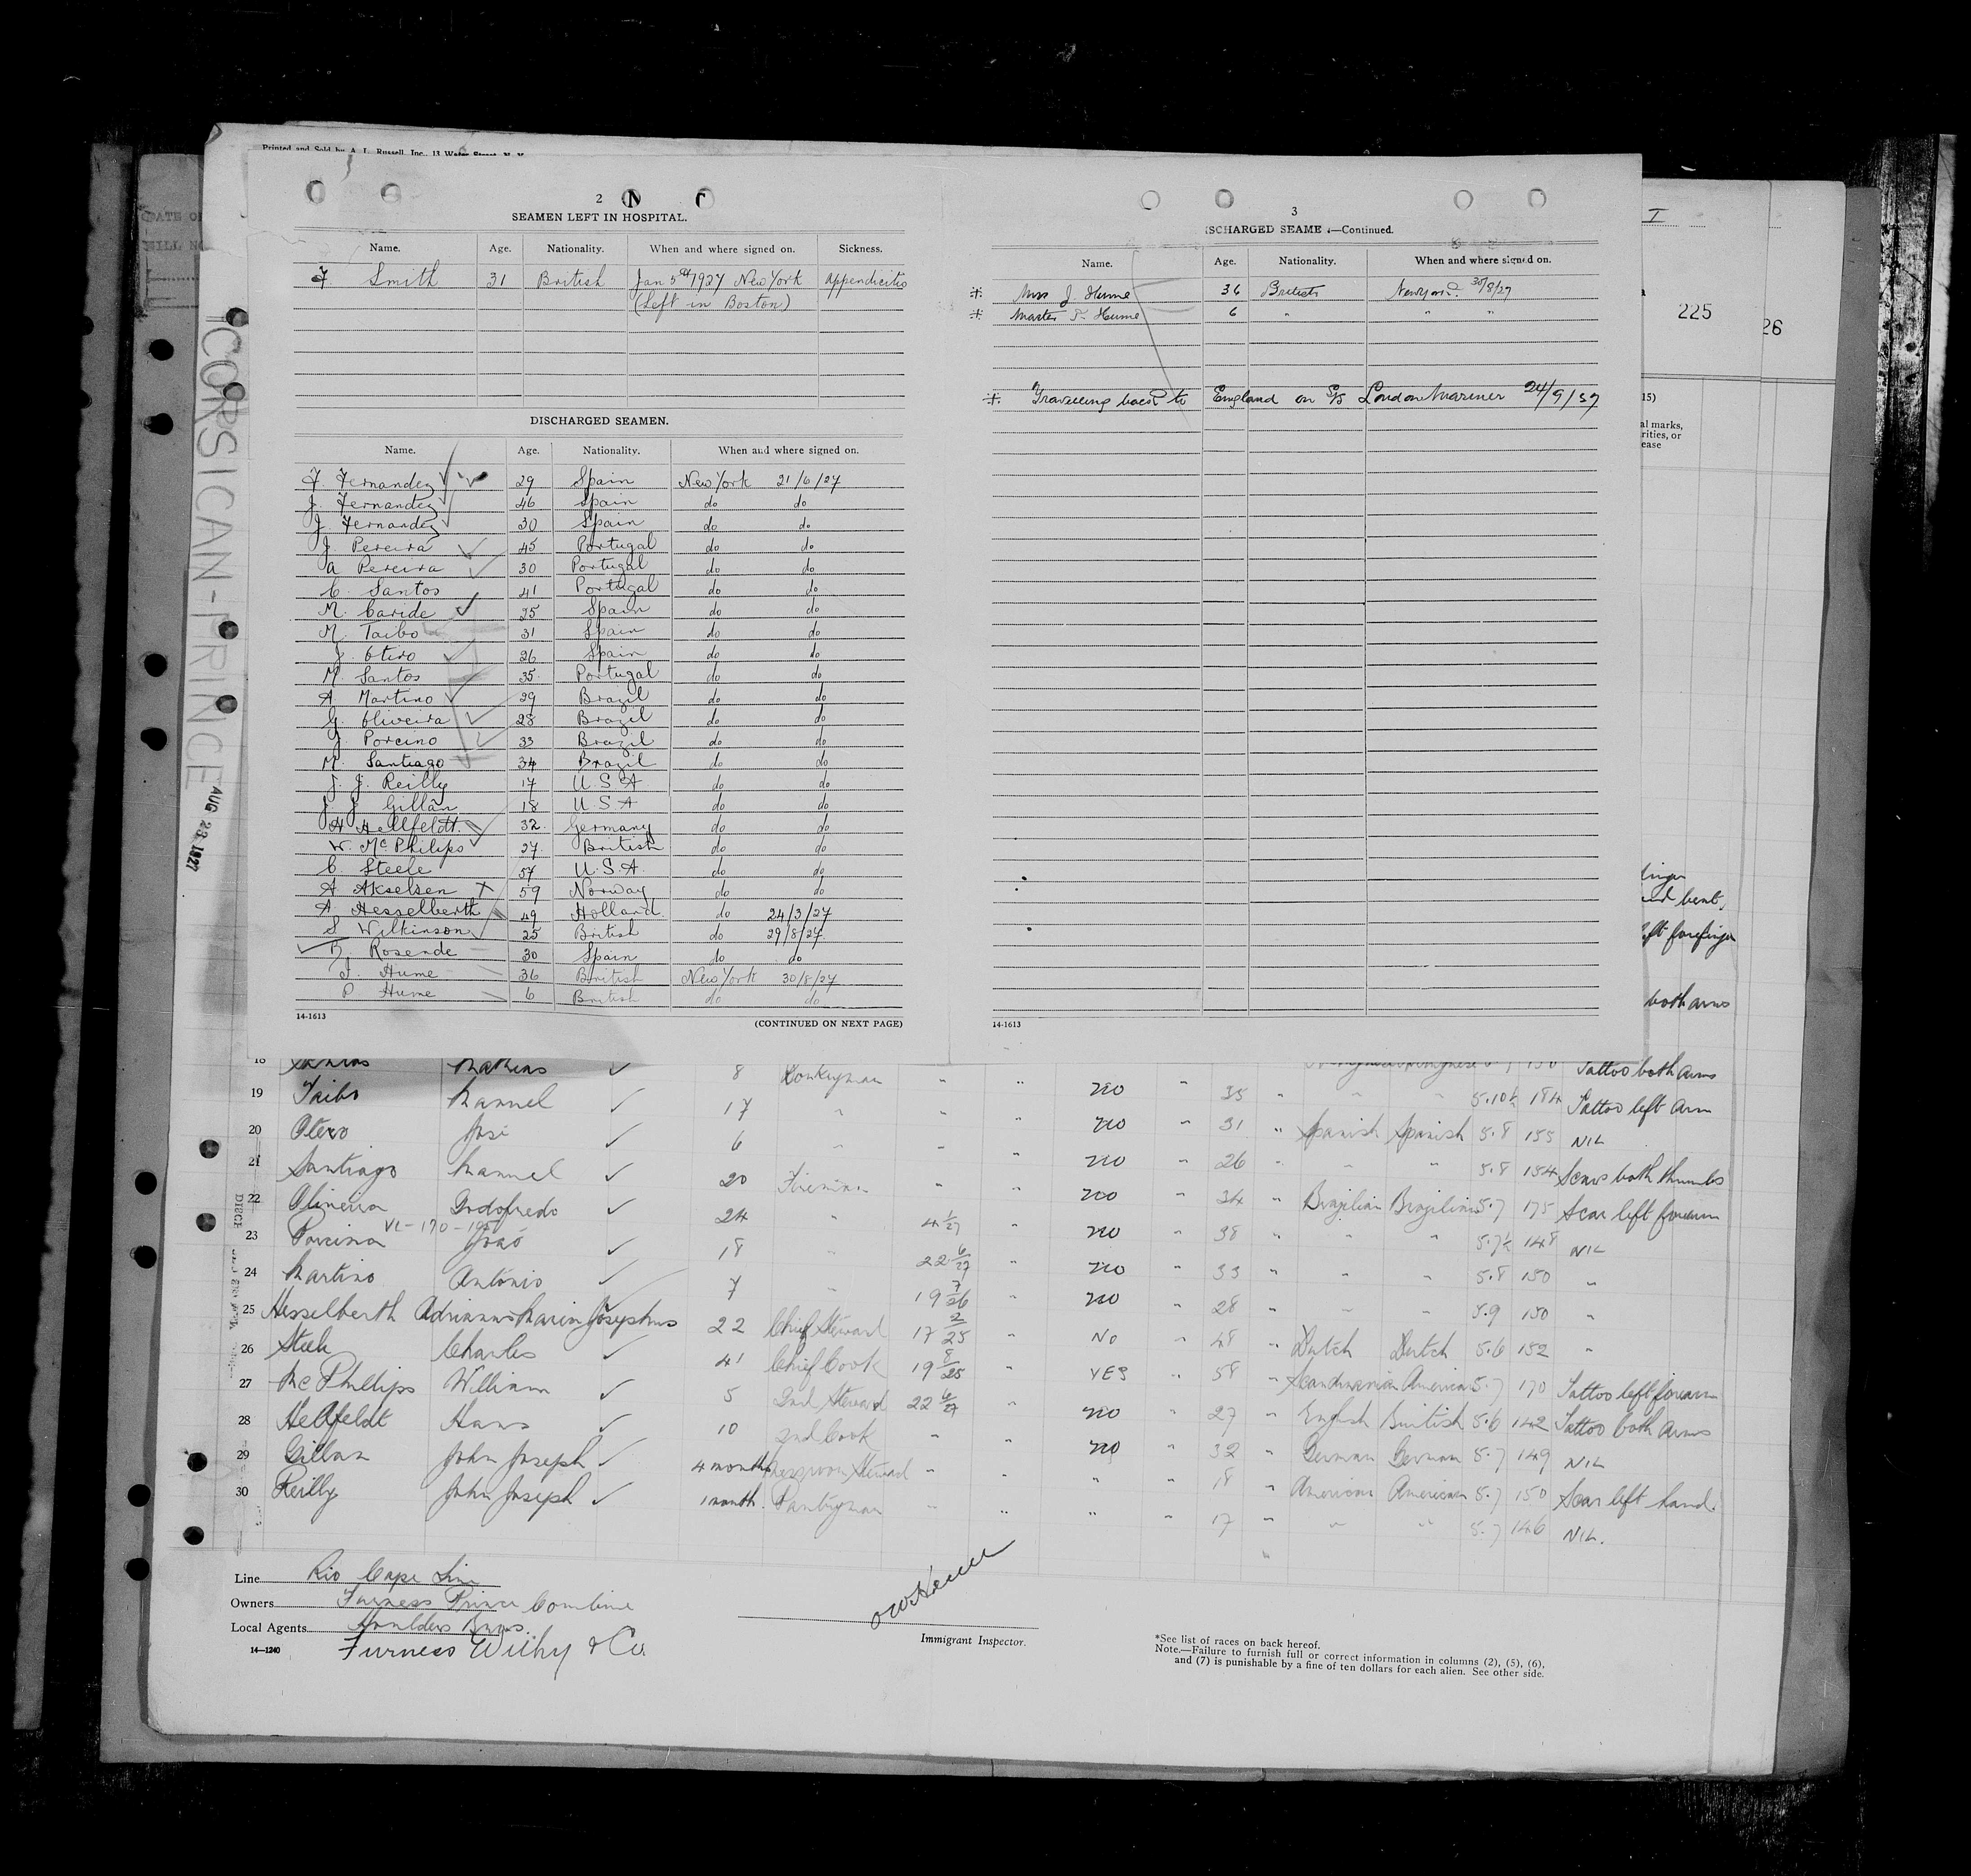 Printed and Sold by A. L. Russell, Inc., 13 Water Street, N. Y.
2
SEAMEN LEFT IN HOSPITAL.
Name. Age. Nationality. When and where signed on. Sickness.
F Smith 31 British Jan 5th 1927 New York Appendicitis
(Left in Boston)
DISCHARGED SEAMEN.
Name. Age. Nationality. When and where signed on.
F. Fernandez 29 Spain New York 21/6/27
J. Fernandez 46 Spain do do
J. Fernandez 30 Spain do do
J. Pereira 45 Portugal do do
A Pereira 30 Portugal do do
C. Santos 41 Portugal do do
M. Caride 35 Spain do do
M. Taibo 31 Spain do do
J. Otero 26 Spain do do
M. Santos 35 Portugal do do
A Martino 29 Brazil do do
G. Oliveira 28 Brazil do do
J Porcino 33 Brazil do do
M. Santiago 34 Brazil do do
J. J. Reilly 17 U.S.A do do
J. J. Gillan 18 U.S.A do do
H Hellfeldt. 32. Germany do do
W. McPhilips 27 British do do
C. Steele 57 U.S.A. do do
A Akselsen X 59 Norway do do
A. Hesselberth 49 Holland. do 24/3/27
S Wilkinson 25 British do 29/8/27
Rosende 30 Spain do do
J. Hume 36 British New York 30/8/27
P Hume 6 British do do
14-1613 (CONTINUED ON NEXT PAGE)
3
ISCHARGED SEAME —Continued.
Name. Age. Nationality. When and where signed on.
Mrs J. Hume 36 British New York 30/8/27
Master P. Hume 6 " " "
Travelling back to England on S/S London Mariner 24/9/27
14-1613
I
225
26
15)
al marks,
rities, or
ease
left forefinger
both arms
CORSICAN-PRINCE
AUG 23 1927
18 Santos Mathias 8 Donkeyman " " Tattoo both arms
19 Taibo Manuel 17 " " " no " 35 " " " 5.10½ 184 Tattoo left arm
20 Otero José 6 " " " no " 31 " Spanish Spanish 5.8 155 NIL
21 Santiago Manuel 20 Fireman " " no " 26 " " " 5.8 154 Scars both thumbs
22 Oliveira Godofredo 24 " 4 1/27 " no " 34 " Brazilian Brazilian 5.7 175 Scar left forearm
23 Porcino João 18 " 22 6/27 " no " 38 " " " 5.7½ 148 NIL
24 Martino Antonio 7 " 19 7/26 " no " 33 " " " 5.8 150 "
25 Hesselberth Adrianus Maria Josephus 22 Chief Steward 17 2/25 " no " 28 " " " 5.9 150 "
26 Steele Charles 41 Chief Cook 19 8/25 " No " 48 " Dutch Dutch 5.6 152 "
27 McPhillips William 5 2nd Steward 22 6/27 " YES " 58 " Scandinavian American 5.7 170 Tattoo left forearm
28 Hellfeldt Hans 10 2nd Cook " " no " 27 " English British 5.6 142 Tattoo both arms
29 Gillan John Joseph 4 months Messroom Steward " " no " 32 " German German 5.7 149 NIL
30 Reilly John Joseph 1 month. Pantryman " " " " 18 " American American 5.7 150 Scar left hand.
17 " " " 5.7 146 NIL.
Line Rio Cape Line
Owners Furness Prince Combine
Local Agents Houlders Bros.
14—1240 Furness Withy & Co.
Immigrant Inspector.
*See list of races on back hereof.
Note.—Failure to furnish full or correct information in columns (2), (5), (6),
and (7) is punishable by a fine of ten dollars for each alien. See other side.